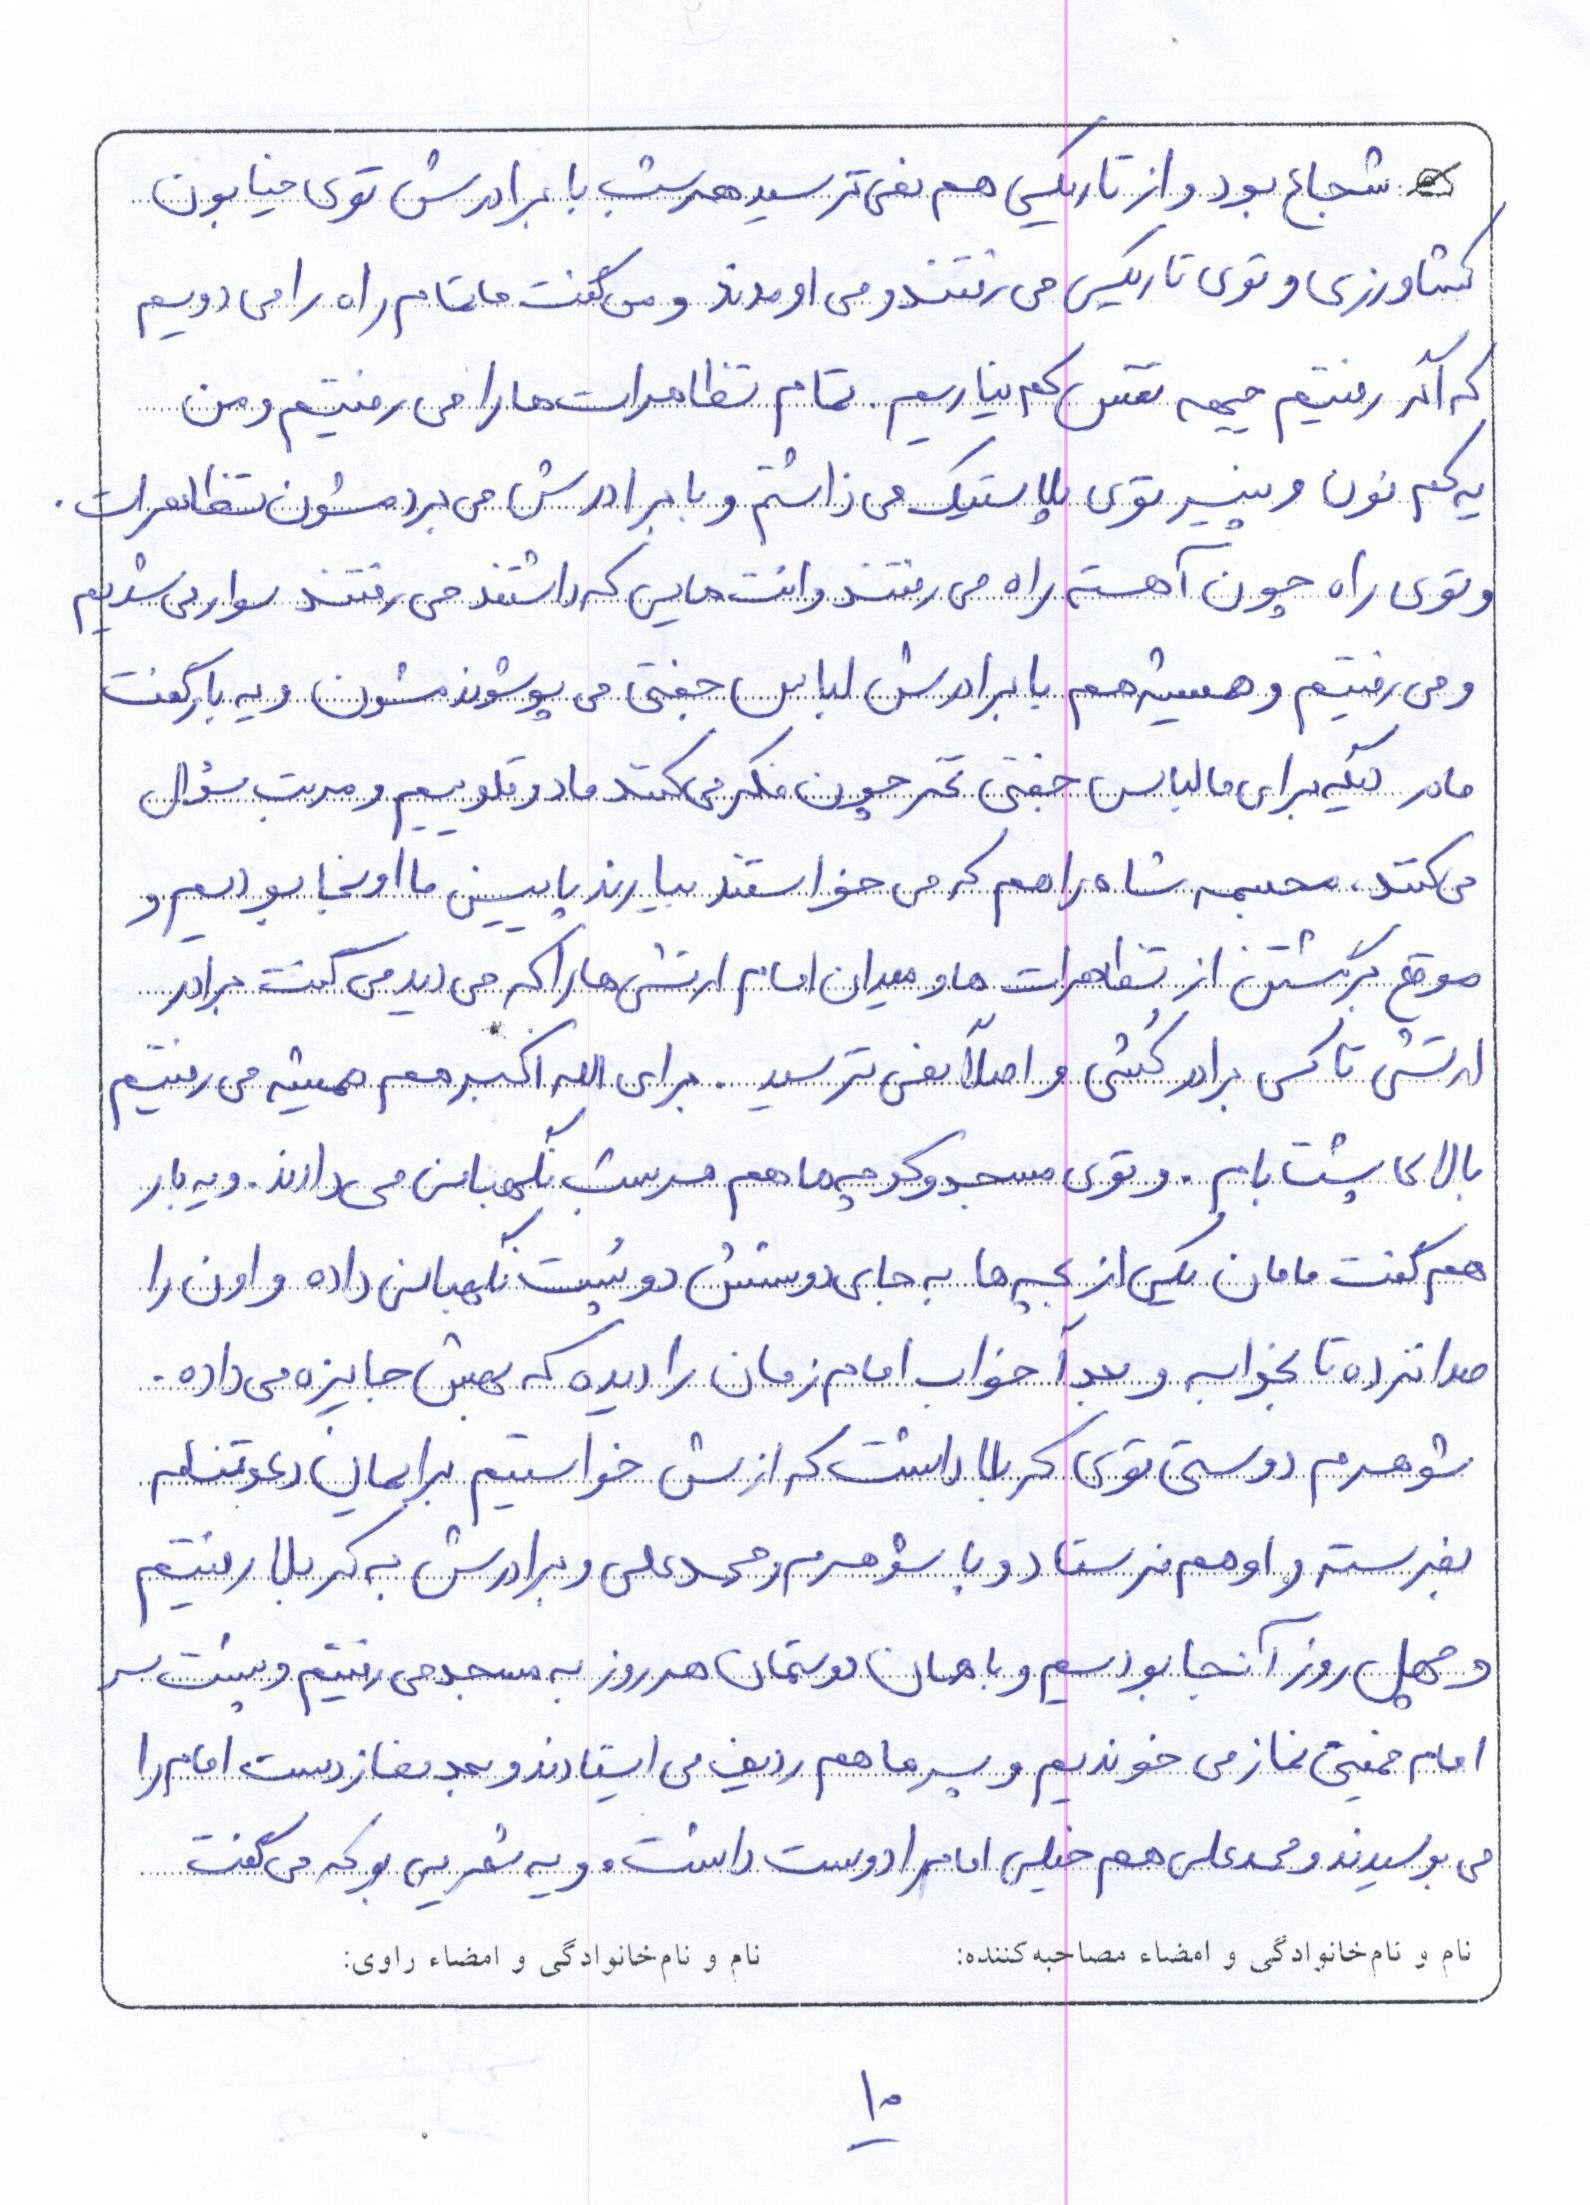 شجاع بود و از تاریکی هم نمی ترسید هر شب با برادرش توی خیابون
کشاورزی و توی تاریکی می رفتند و می اومدند و می گفت ما تمام راه را می دویم
که اگر رفتیم جبهه نفس کم نیاریم. تمام تظاهرات ها را می رفتیم و من
یه کم نون و پنیر توی پلاستیک می ذاشتم و با برادرش می بردمشون تظاهرات.
و توی راه چون آهسته راه می رفتند وانت هایی که داشتند می رفتند سوار می شدیم
و می رفتیم و همیشه هم با برادرش لباس جفتی می پوشوندمشون و یه بار گفت
مادر دیگه برای ما لباس جفتی نخر چون فکر می کنند ما دوقلوییم و مرتب سؤال
می کنند، مجسمه شاه را هم که می خواستند بیارند پایین ما اونجا بودیم و
موقع برگشتن از تظاهرات ها و میدان امام ارتشی ها را که می دید می گفت برادر
ارتشی تا کی برادر کُشی و اصلاً نمی ترسید. برای الله اکبر هم همیشه می رفتیم
بالای پشت بام. و توی مسجد و کوچه ما هم هر شب نگهبانی می دادند. و یه بار
هم گفت مامان یکی از بچه ها به جای دوستش دو شیفت نگهبانی داده و اون را
صدا نزده تا بخوابه و بعداً خواب امام زمان را دیده که بهش جایزه می داده.
شوهرم دوستی توی کربلا داشت که ازش خواستیم برایمان دعوتنامه
بفرسته و او هم فرستاد و با شوهرم و محمد علی و برادرش به کربلا رفتیم
و چهل روز آنجا بودیم و با همان دوستمان هر روز به مسجد می رفتیم و پشت سر
امام خمینی نماز می خوندیم و پسر ما هم ردیف می ایستادند و بعد نماز دست امام را
می بوسیدند و محمد علی هم خیلی امام را دوست داشت. و یه شعریی بو که می گفت
نام و نام خانوادگی و امضاء مصاحبه کننده: نام و نام خانوادگی و امضاء راوی:
۱۰